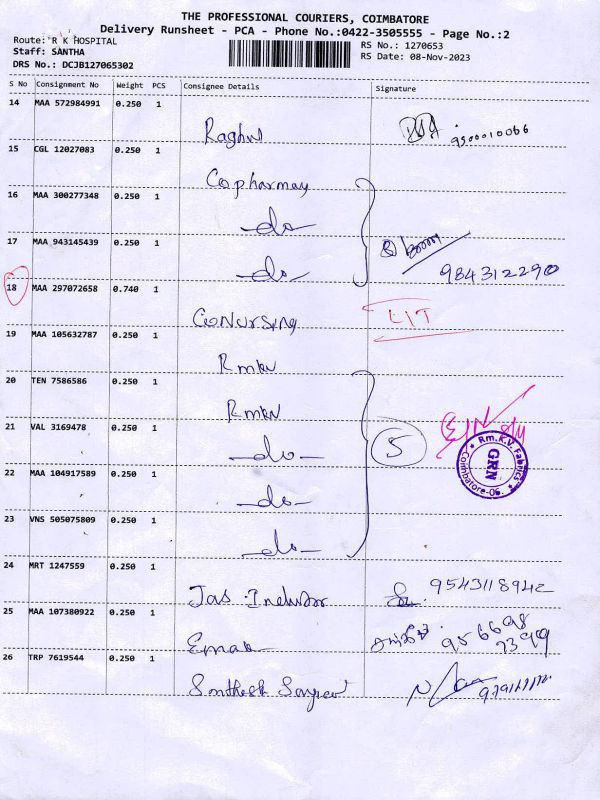 THE PROFESSIONAL COURIERS, COIMBATORE
Delivery Runsheet - PCA - Phone No.:0422-3505555 - Page No.:2
Route: R K HOSPITAL
Staff: SANTHA
DRS No.: DCJB127065302
RS No.: 1270653
RS Date: 08-Nov-2023
S No Consignment No Weight PCS Consignee Details Signature
14 MAA 572984991 0.250 1
Raghul
9500010066
15 CGL 12027083 0.250 1
Copharmay
16 MAA 300277348 0.250 1
-do-
17 MAA 943145439 0.250 1
-do-
9843122290
18 MAA 297072658 0.740 1
CoNursing
LIT
19 MAA 105632787 0.250 1
Rmkv
20 TEN 7586586 0.250 1
Rmkv
21 VAL 3169478 0.250 1
-do-
5
Rm.K.V. Fabrics
GRN
Coimbatore-06.
22 MAA 104917589 0.250 1
-do-
23 VNS 505075809 0.250 1
-do-
24 MRT 1247559 0.250 1
Jas
9543118942
25 MAA 107380922 0.250 1
956698
7399
26 TRP 7619544 0.250 1